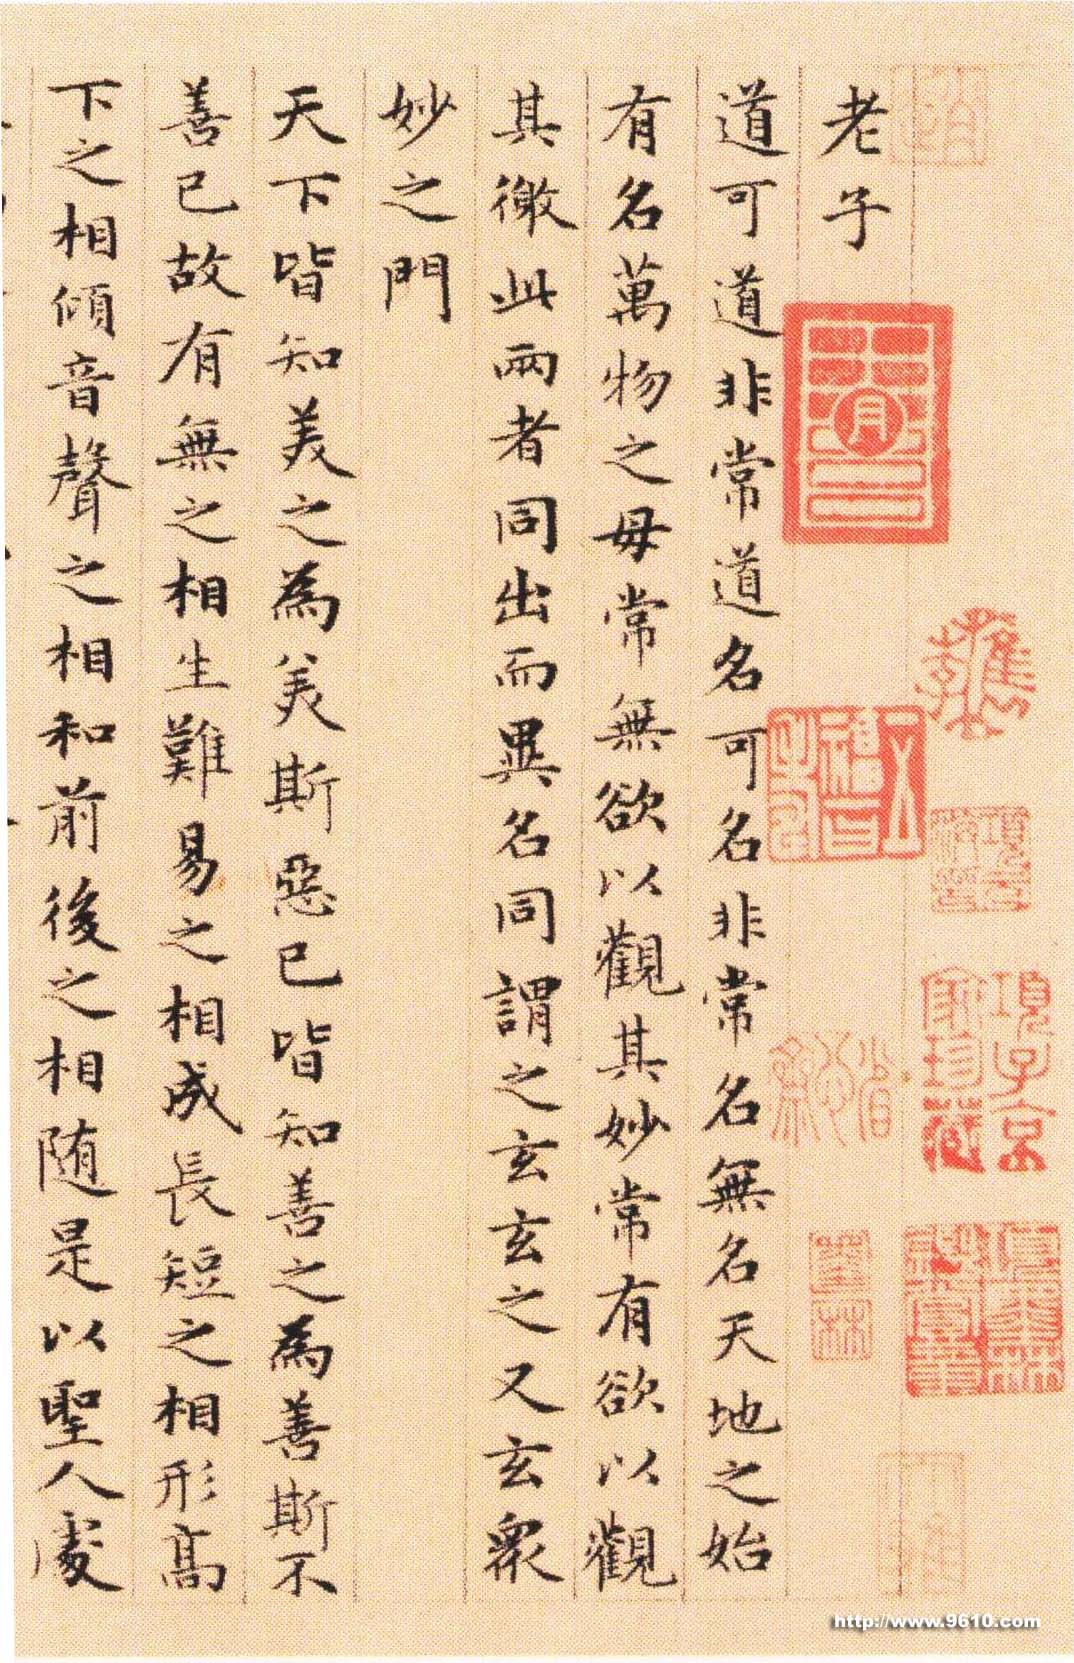 項子京家珍藏
墨林
老子
道可道非常道名可名非常名無名天地之始
有名萬物之母常無欲以觀其妙常有欲以觀
其徼此兩者同出而異名同謂之玄玄之又玄衆
妙之門
天下皆知美之為美斯惡已皆知善之為善斯不
善已故有無之相生難易之相成長短之相形高
下之相傾音聲之相和前後之相随是以聖人處
http://www.9610.com